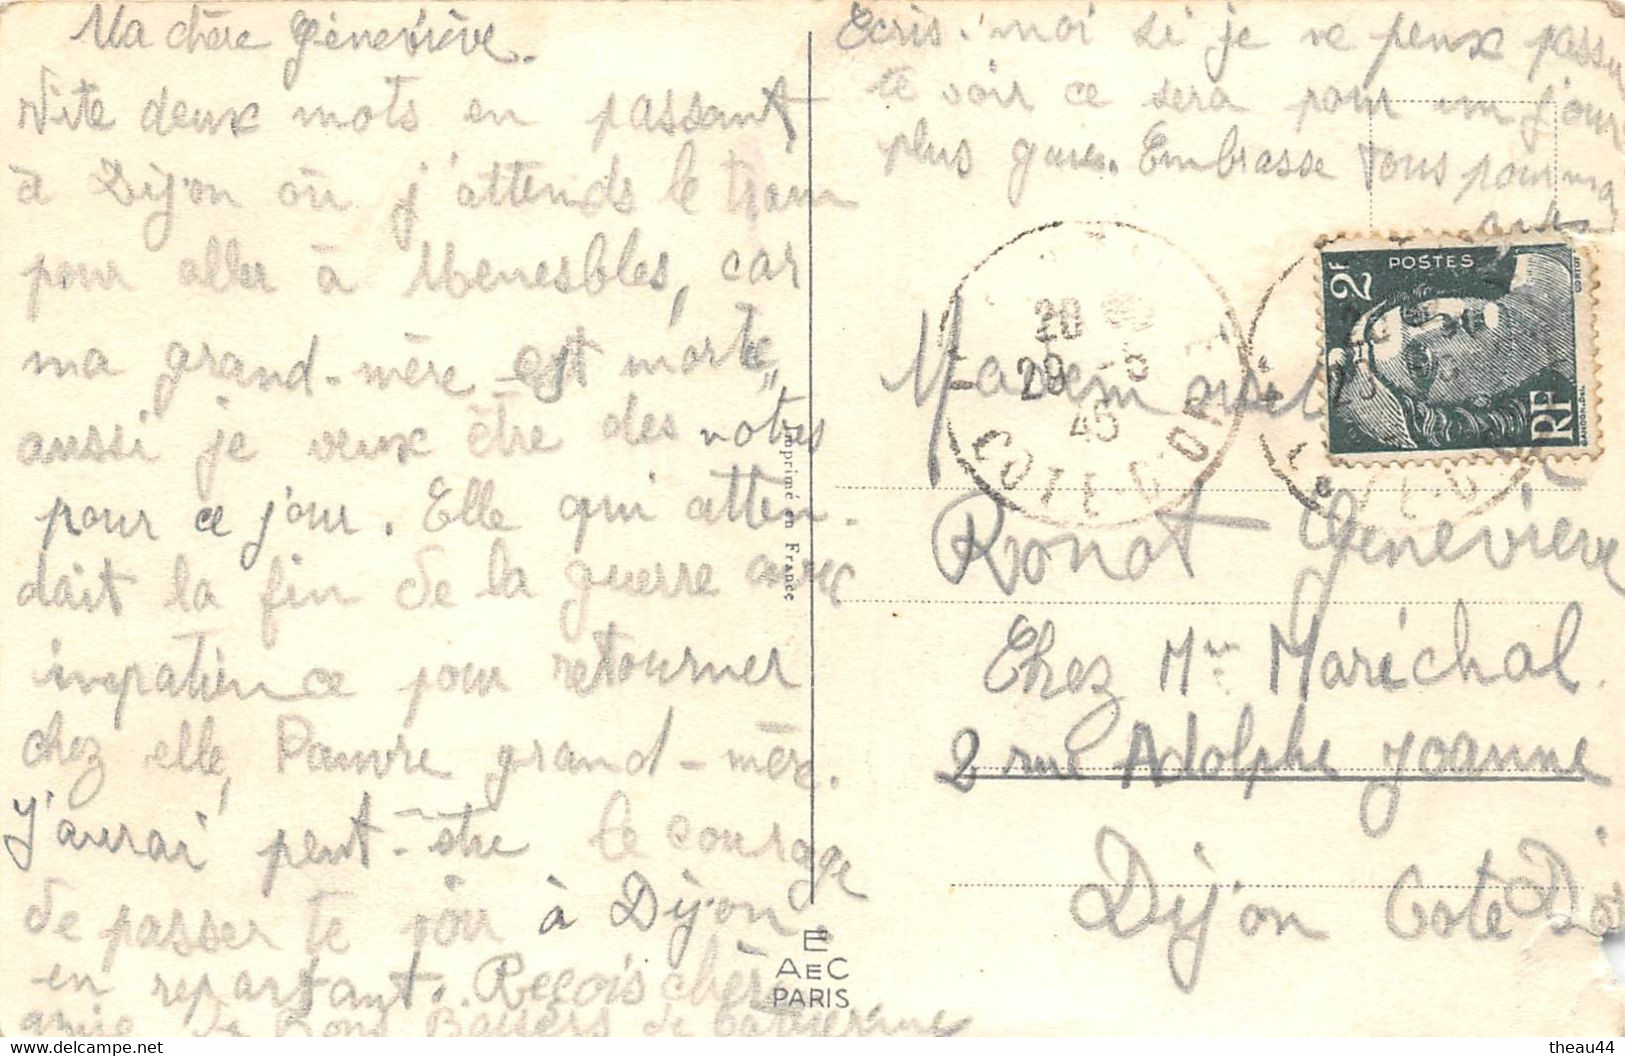 Ma chère Géneviève.
Vite deux mots en passant
à Dijon où j'attends le tram
pour aller à Menesbles, car
ma grand-mère est morte,,
aussi je veux être des notres
pour ce jour. Elle qui atten-
dait la fin de la guerre avec
impatience pour retourner
chez elle, Pauvre grand-mère.
J'aurai peut-être le courage
de passer te voir à Dijon
en repartant. Reçois chère
amie de Bons Baisers de Catherine
Ecris-moi si je ne peux passer
te voir ce sera pour un jour
plus gai. Embrasse tous pour ma
part
POSTES
2F
RF
GANDON.DEL
20
29 -5
45
COTE-D'OR
Mademoiselle
Ronot Geneviève
Chez Mme Maréchal.
2 rue Adolphe Joanne
Dijon Cote D'or
Imprimé en France
AEC
PARIS
https://www.delcampe.net
theau44